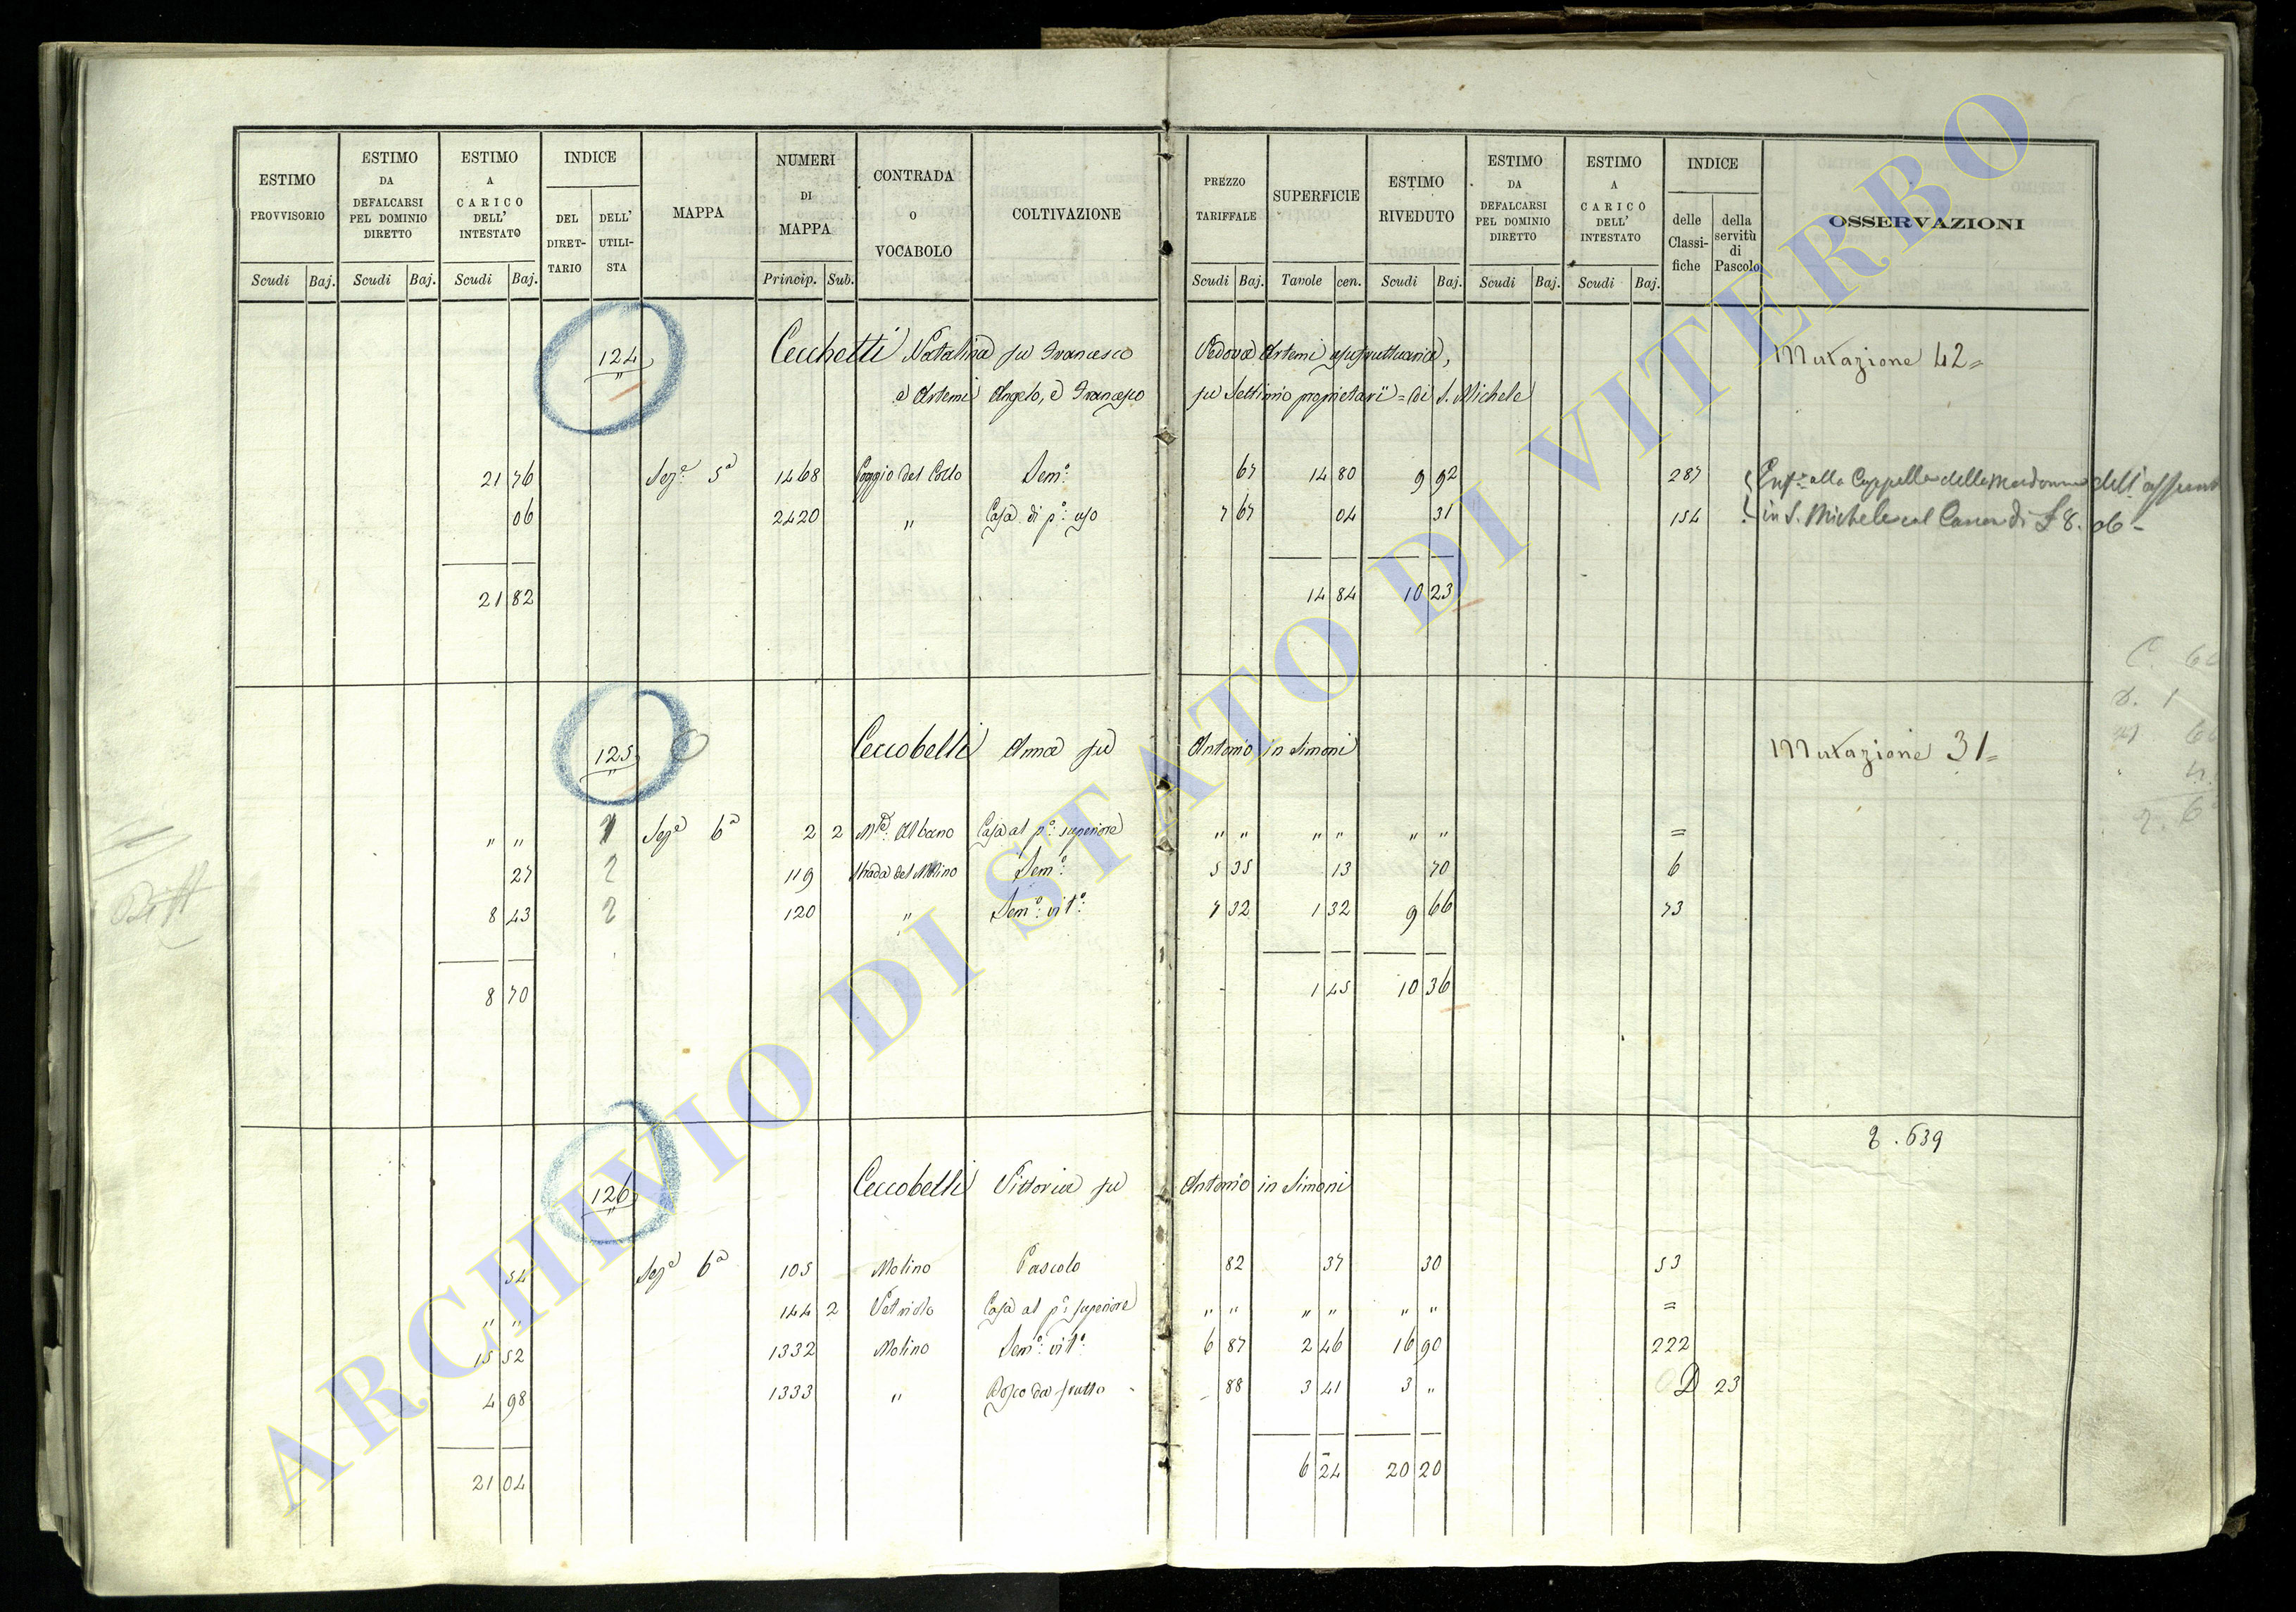 ESTIMO PROVVISORIO | ESTIMO DA DEFALCARSI PEL DOMINIO DIRETTO | ESTIMO A CARICO DELL' INTESTATO | INDICE DEL DIRET-TARIO | DELL' UTILI-STA | MAPPA | NUMERI DI MAPPA | CONTRADA O VOCABOLO | COLTIVAZIONE | PREZZO TARIFFALE | SUPERFICIE | ESTIMO RIVEDUTO | ESTIMO DA DEFALCARSI PEL DOMINIO DIRETTO | ESTIMO A CARICO DELL' INTESTATO | INDICE delle Classi-fiche | della servitù di Pascolo | OSSERVAZIONI
Scudi | Baj. | Scudi | Baj. | Scudi | Baj. | Princip. | Sub. | Scudi | Baj. | Tavole | cen. | Scudi | Baj. | Scudi | Baj. | Scudi | Baj.
124 Cecchetti Natalina fu Francesco Vedova Artemi usufruttuaria, Mutazione 42=
e Artemi Angelo, e Francesco fu Settimio proprietari = di S. Michele
21 76 Sez.e 5a 1468 Poggio del Collo Sem.o 67 14 80 9 92 287 Enf. alla Cappella della Madonna dell'
06 2420 " Casa di p.o uso 7 67 04 31 154 in S. Michele col Canon di £ 8. 06 -
21 82 14 84 10 23
125 Ceccobelli Anna fu Antonio in Simoni Mutazione 31=
" " 1 Sez.e 6a 2 2 M.te Albano Casa al p.o superiore " " " " " " =
27 2 119 Strada del Molino Sem.o 5 35 13 70 6
8 43 2 120 " Sem.o vit.o 7 32 1 32 9 66 73
8 70 1 45 10 36
2. 639
126 Ceccobelli Vittoria fu Antonio in Simoni
54 Sez.e 6a 105 Molino Pascolo 82 37 30 53
" " 144 2 Vetriolo Casa al p.o superiore " " " " " " =
15 52 1332 Molino Sem.o vit.o 6 87 2 46 16 90 222
4 98 1333 " Bosco da frutto - 88 3 41 3 " D 23
21 04 6 24 20 20
ARCHIVIO DI STATO DI VITERBO